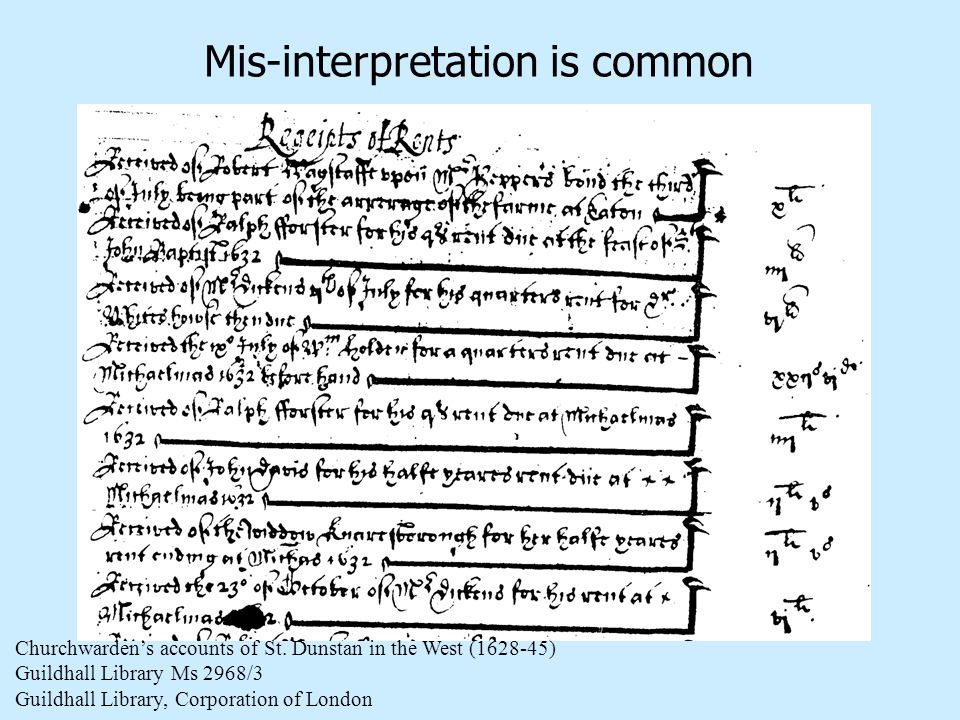 Mis-interpretation is common
Receipts of Rents
Received of Robert upon Mr Keppers bond the third
of July being part of the arrerage of the farme at Eaton
Received of Ralph fforster for his qrs rent due at the feast of
John Baptist 1632
Received of Mr Dickens of July for his quarters rent for Dr
Whites howse then due
Received the ixo July of Wm Holden for a quarters rent due at
Michaelmas 1632 before hand
Received of Ralph fforster for his qrs rent due at Michaelmas
1632
Received of John Davis for his halfe yeares rent due at
Michaelmas 1632
Received of the widdow Knaresborough for her halfe yeares
rent ending at Michas 1632
Received the 23o of October of Mr Dickens for his rent at
Michaelmas
Churchwarden’s accounts of St. Dunstan in the West (1628-45)
Guildhall Library Ms 2968/3
Guildhall Library, Corporation of London